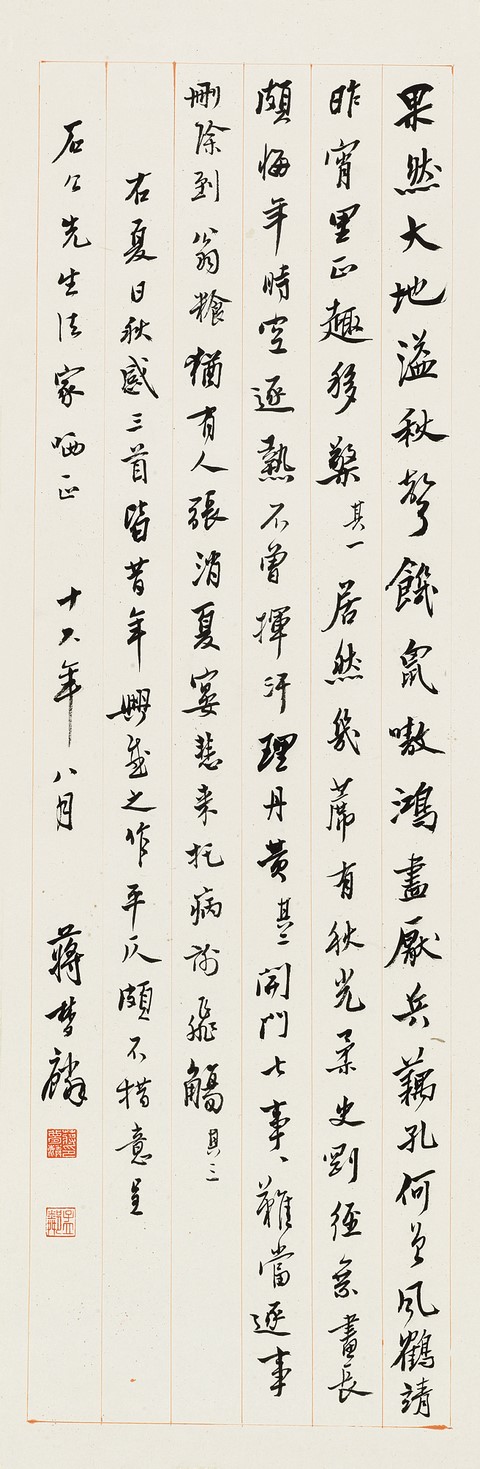 果然大地溢秋聲饑鼠嗷鴻盡厭兵藕孔何曾風鶴靖
昨宵里正趣移檠其一居然几蓆有秋光柔史剛經晝長
頗悔年時空逐熱不曾揮汗理丹黃其二開門七事、難當逐事
刪除到翁飧猶有人張消夏宴愁來托病謝飛觴其三
右夏日秋感三首皆昔年之作平仄頗不措意呈
石公先生法家哂正 十六年八月 蔣夢麟
孟鄰